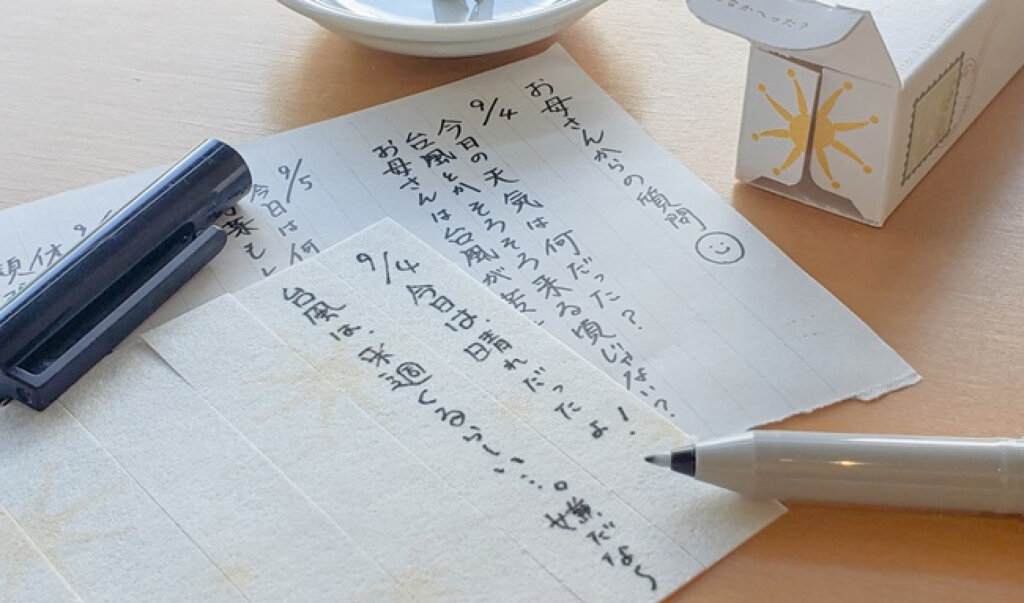 お母さんからの質問
9/4
今日の天気は何だった?
台風とかそろそろ来る頃じゃない?
お母さんは台風が
9/5
今日は何
9/4
今日は、晴れだったよ!
台風は、来週くるらしい…。嫌だなぁ